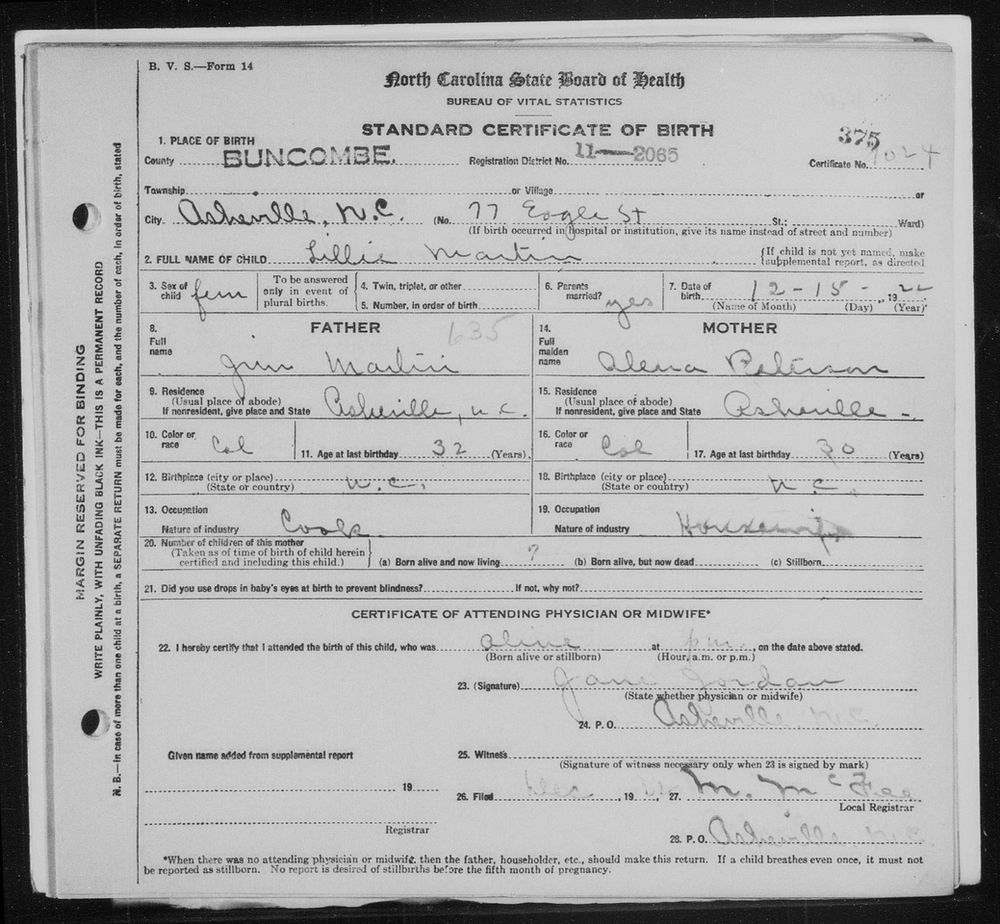 B. V. S.—Form 14
North Carolina State Board of Health
BUREAU OF VITAL STATISTICS
STANDARD CERTIFICATE OF BIRTH
375
1. PLACE OF BIRTH
County BUNCOMBE. Registration District No. 11—2065 Certificate No. 1024
Township or Village or
City Asheville, N.C. (No. 77 Eagle St St.; Ward)
(If birth occurred in hospital or institution, give its name instead of street and number)
2. FULL NAME OF CHILD Lillie Martin {If child is not yet named, make supplemental report, as directed
3. Sex of child fem
To be answered only in event of plural births.
4. Twin, triplet, or other
5. Number, in order of birth
6. Parents married? yes
7. Date of birth 12-15-, 1922
(Name of Month) (Day) (Year)
8. FATHER 635
Full name Jim Martin
9. Residence (Usual place of abode) If nonresident, give place and State Asheville, N.C.
10. Color or race Col
11. Age at last birthday 32 (Years)
12. Birthplace (city or place) (State or country) N.C.
13. Occupation
Nature of industry Cook
14. MOTHER
Full maiden name Peterson
15. Residence (Usual place of abode) If nonresident, give place and State Asheville-
16. Color or race Col
17. Age at last birthday 30 (Years)
18. Birthplace (city or place) (State or country) N.C.
19. Occupation
Nature of industry Housewife
20. Number of children of this mother
(Taken as of time of birth of child herein certified and including this child.) (a) Born alive and now living ? (b) Born alive, but now dead (c) Stillborn
21. Did you use drops in baby's eyes at birth to prevent blindness? If not, why not?
CERTIFICATE OF ATTENDING PHYSICIAN OR MIDWIFE*
22. I hereby certify that I attended the birth of this child, who was alive at p m, on the date above stated.
(Born alive or stillborn) (Hour, a.m. or p.m.)
23. (Signature) Jane Jordan
(State whether physician or midwife)
24. P. O. Asheville, N.C.
Given name added from supplemental report
25. Witness
(Signature of witness necessary only when 23 is signed by mark)
19
26. Filed Dec 1922 27. M. McFee
Local Registrar
Registrar
28. P. O. Asheville, N.C.
*When there was no attending physician or midwife, then the father, householder, etc., should make this return. If a child breathes even once, it must not
be reported as stillborn. No report is desired of stillbirths before the fifth month of pregnancy.
MARGIN RESERVED FOR BINDING
WRITE PLAINLY, WITH UNFADING BLACK INK—THIS IS A PERMANENT RECORD
N. B.—In case of more than one child at a birth, a SEPARATE RETURN must be made for each, and the number of each, in order of birth, stated